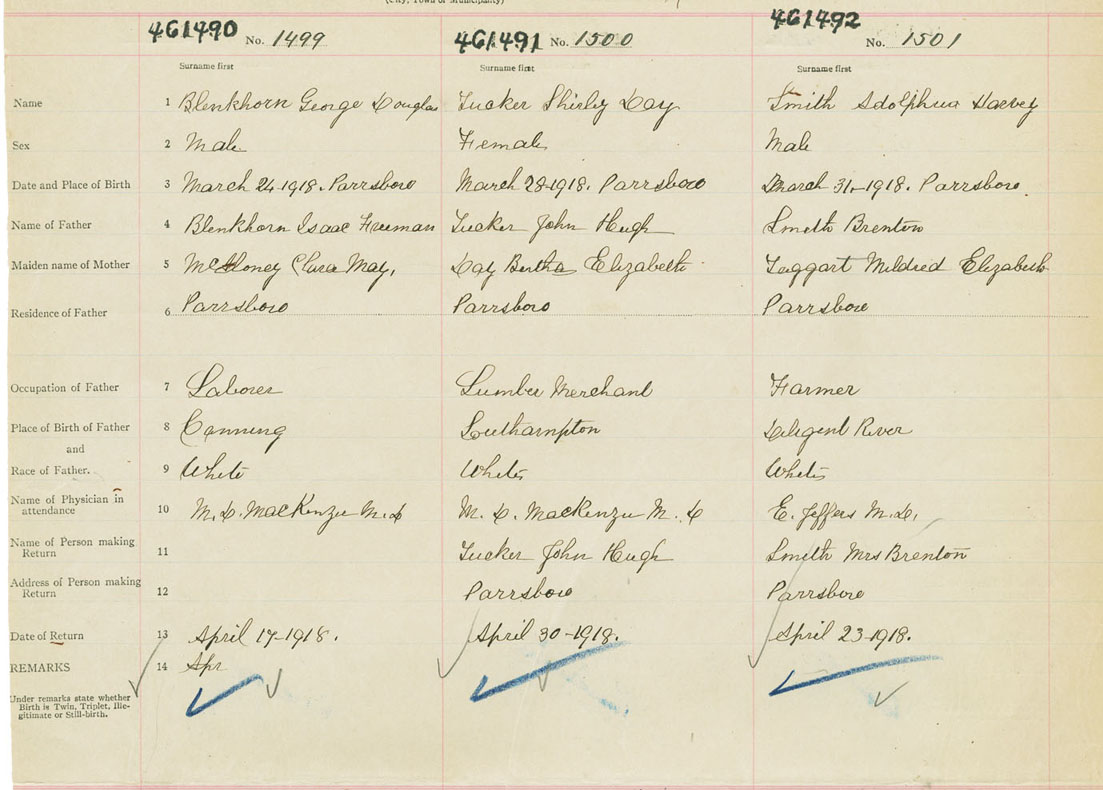 (City, Town or Municipality)
461490 No. 1499 461491 No. 1500 461492 No. 1501
Surname first Surname first Surname first
Name 1 Blenkhorn George Douglas Tucker Shirley Day Smith Adolphus Harvey
Sex 2 Male Female Male
Date and Place of Birth 3 March 24-1918. Parrsboro March 28-1918. Parrsboro March 31-1918. Parrsboro.
Name of Father 4 Blenkhorn Isaac Freeman Tucker John Hugh Smith Brenton
Maiden name of Mother 5 Clara May, Day Bertha Elizabeth Taggart Mildred Elizabeth
Residence of Father 6 Parrsboro Parrsboro Parrsboro
Occupation of Father 7 Laborer Lumber Merchant Farmer
Place of Birth of Father 8 Canning Southampton Diligent River
and
Race of Father. 9 White White White
Name of Physician in attendance 10 M. D. MacKenzie M. D M. D. MacKenzie M. D E. Jeffers M.D.
Name of Person making Return 11 Tucker John Hugh Smith Mrs Brenton
Address of Person making Return 12 Parrsboro Parrsboro
Date of Return 13 April 17-1918. April 30-1918. April 23-1918.
REMARKS 14 Apr
Under remarks state whether
Birth is Twin, Triplet, Ille-
gitimate or Still-birth.